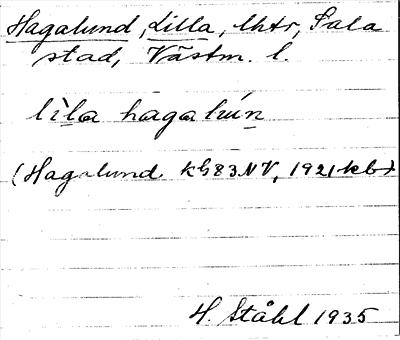 Hagalund, Lilla, lhtr, Sala
stad, Västm. l.
lìla hagalún
(Hagalund kb 83 NV, 1921 kb)
H. Ståhl 1935